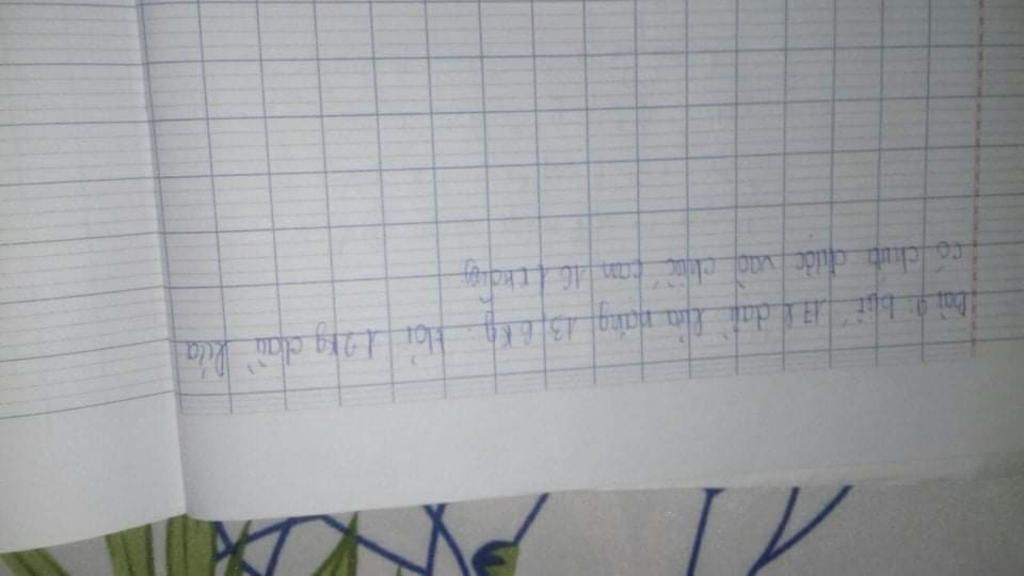 Bài 9: biết 17 l dầu lửa nặng 13,6 kg. Hỏi 12 kg dầu lửa
có chứa được vào chiếc can 16 l không